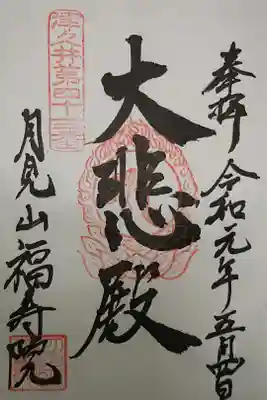 奉拝 令和元年五月四日
大悲殿
津久井第四十三番
月見山福寿院